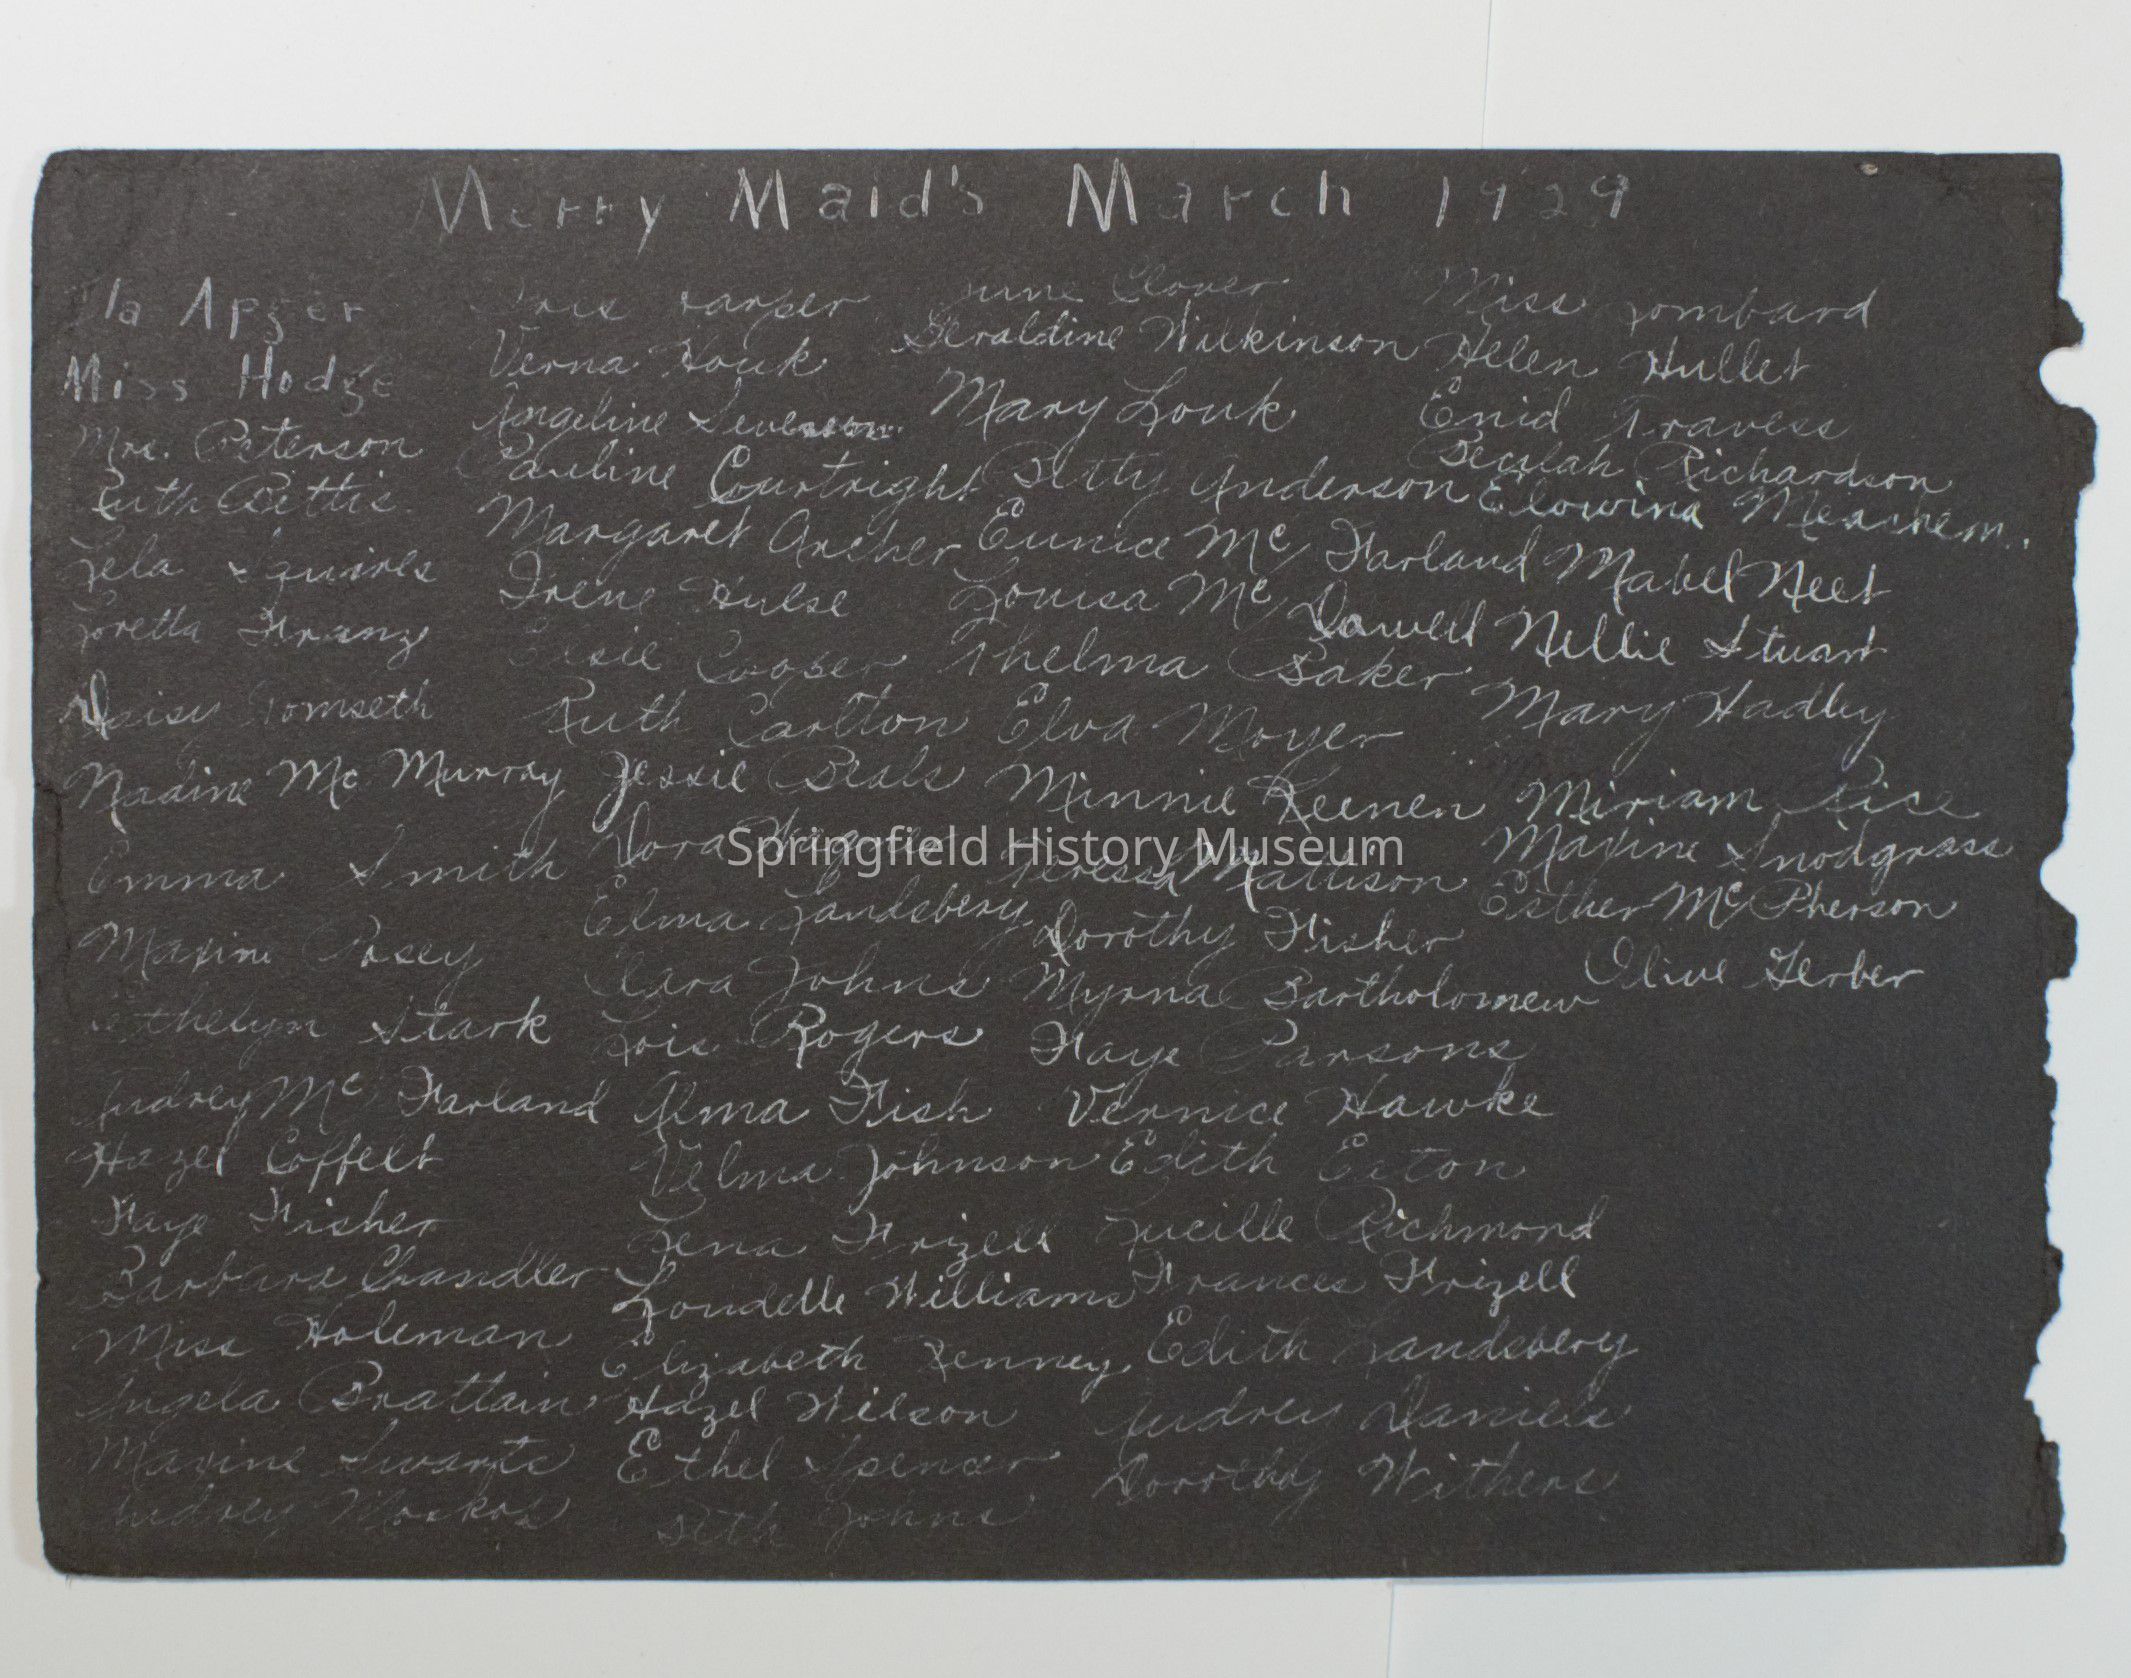 Merry Maid's March 1929
Ila Apger
Miss Hodge
Mrs. Peterson
Ruth Pettis
Lela Squires
Loretta Franz
Daisy Tomseth
Nadine Mc Murray
Emma Smith
Maxine Posey
Ethelyn Stark
Audrey Mc Farland
Hazel Coffelt
Faye Fisher
Barbara Chandler
Miss Holeman
Angela Brattain
Maxine Swarts
Audrey
Iris Harper
Verna Houk
Angeline
Pauline Courtright
Margaret Archer
Irene Hulse
Elsie Cooper
Ruth Carlton
Jessie Beals
Dora
Elma Landsbery
Clara Johns
Lois Rogers
Alma Fish
Velma Johnson
Lena Frizell
Loudelle Williams
Elizabeth Kenney
Hazel Wilson
Ethel Spencer
Beth Johns
June Clover
Geraldine Wilkinson
Mary Louk
Betty Anderson
Eunice Mc Farland
Louisa Mc Dowell
Thelma Baker
Elva Moyer
Minnie Keenen
Teressa Mattison
Dorothy Fisher
Myrna Bartholomew
Faye Parsons
Vernice Hawke
Edith Eaton
Lucille Richmond
Frances Frizell
Edith Landsbery
Audrey Daniels
Dorothy Withers
Miss Lombard
Helen Hullet
Enid Travess
Beulah Richardson
Elowina
Mabel Neet
Nellie Stuart
Mary Hadley
Miriam Rice
Maxine Snodgrass
Esther Mc Pherson
Olive Gerber
Springfield History Museum